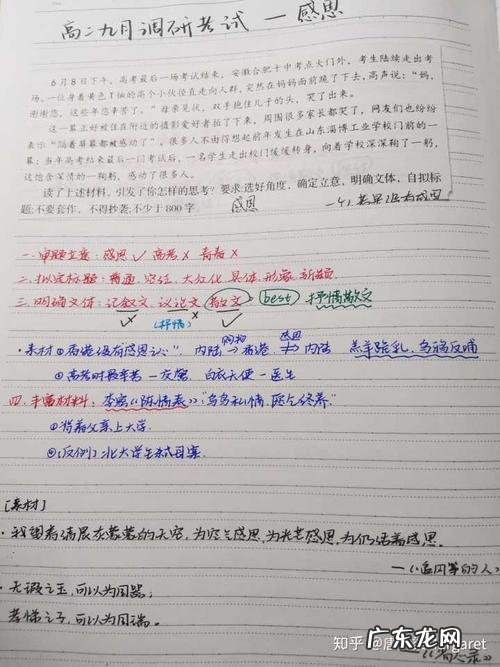 高二九月调研考试 — 感恩
6月8日下午,高考最后一场考试结束,安徽合肥十中考点大门外,考生陆续走出考
场,一位身着黄色T恤的高个小伙径直走向人群,突然在妈妈面前跪了下去,高声说:“妈,
谢谢您,这些年您辛苦了。”母亲见状,双手抱住儿子的头,哭了出来。
这一幕正好被在附近的摄影爱好者拍了下来,周围很多家长都哭了,网友们也纷纷
表示“隔着屏幕都被感动了”。很多人不由得想起前年发生在山东淄博工业学校门前的一
幕:当年高考结束最后一门考试后,一名学生走出校门缓缓转身,向着学校深深鞠了一躬,
这饱含深情的一鞠躬,感动了很多人。
读了上述材料,引发了你怎样的思考?要求:选好角度,确定立意,明确文体,自拟标
题;不要套作,不得抄袭;不少于800字
感恩
一、审题立意:感恩 √ 高考 × 青春 ×
二、拟定标题:普通、空泛、大众化、具体、形象、新颖
三、明确文体:记叙文、议论文 散文 best 抒情散文
√ × √
(抒情)
·素材 ①香港没有感恩之心“ 内陆 → 香港 内陆 羔羊跪乳,乌鸦反哺
购物
感恩
②高考时最辛苦 — 灰鹭 白衣天使 — 医生
四、丰富材料:李密《陈情表》“乌鸟私情,愿乞终养”
①背着父亲上大学
②(反例)北大学生弑母案
[素材]
·我望着清晨灰蒙蒙的天空,为空气感恩,为光芒感恩,为仍活着感恩。
—《追风筝的人》
·无瑕之玉,可以为国器;
孝悌之子,可以为国瑞。
知乎
广东龙网